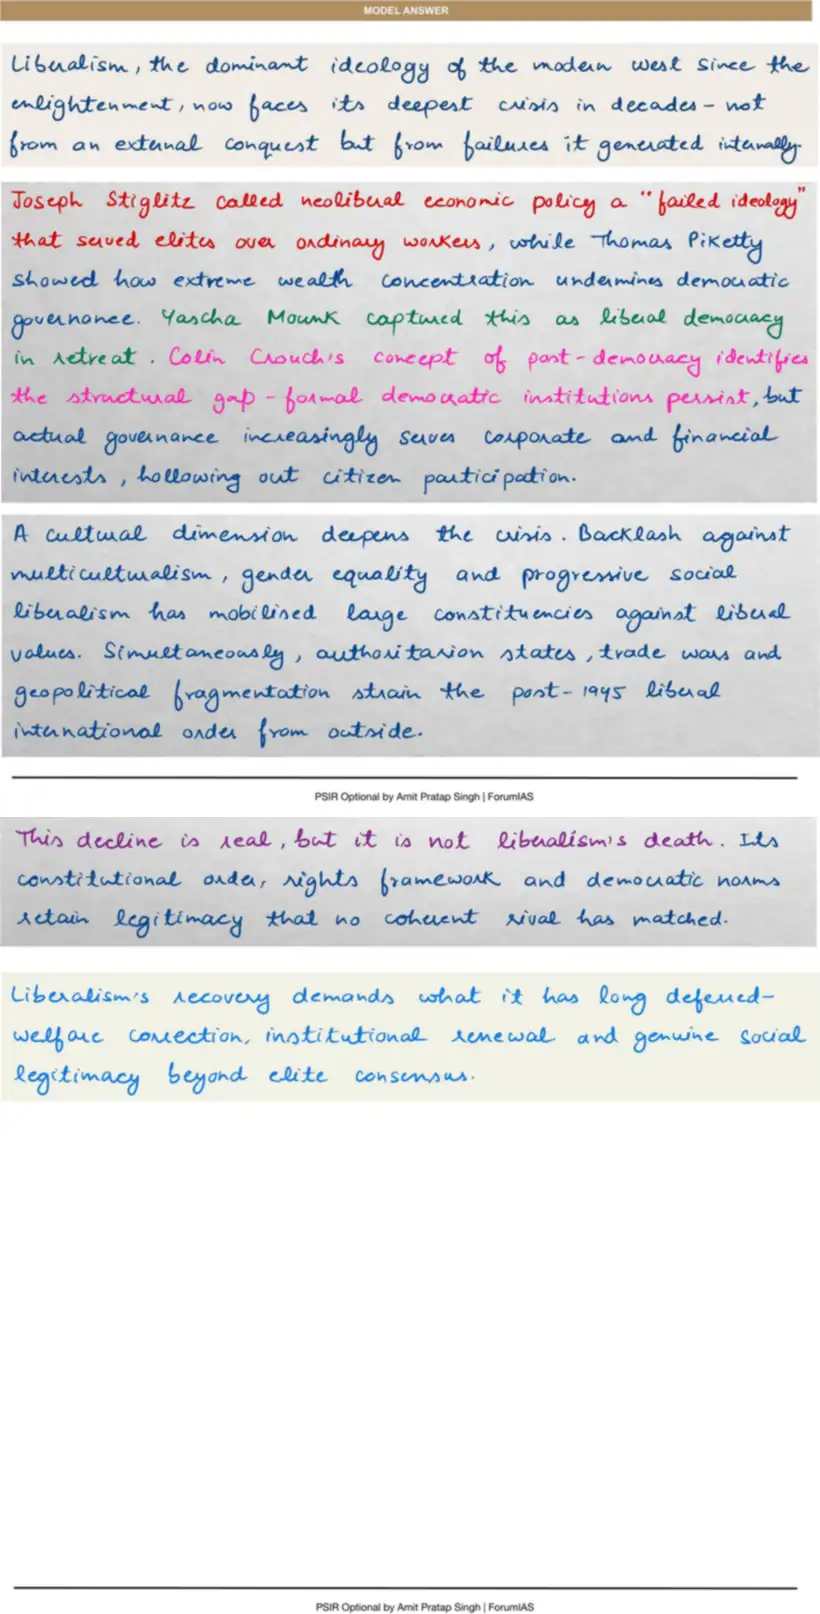 MODEL ANSWER
Liberalism, the dominant ideology of the modern west since the
enlightenment, now faces its deepest crisis in decades - not
from an external conquest but from failures it generated internally.
Joseph Stiglitz called neoliberal economic policy a "failed ideology"
that served elites over ordinary workers, while Thomas Piketty
showed how extreme wealth concentration undermines democratic
governance. Yascha Mounk captured this as liberal democracy
in retreat. Colin Crouch's concept of post-democracy identifies
the structural gap - formal democratic institutions persist, but
actual governance increasingly serves corporate and financial
interests, hollowing out citizen participation.
A cultural dimension deepens the crisis. Backlash against
multiculturalism, gender equality and progressive social
liberalism has mobilised large constituencies against liberal
values. Simultaneously, authoritarian states, trade wars and
geopolitical fragmentation strain the post-1945 liberal
international order from outside.
PSIR Optional by Amit Pratap Singh | ForumIAS
This decline is real, but it is not liberalism's death. Its
constitutional order, rights framework and democratic norms
retain legitimacy that no coherent rival has matched.
Liberalism's recovery demands what it has long deferred-
welfare correction, institutional renewal and genuine social
legitimacy beyond elite consensus.
PSIR Optional by Amit Pratap Singh | ForumIAS